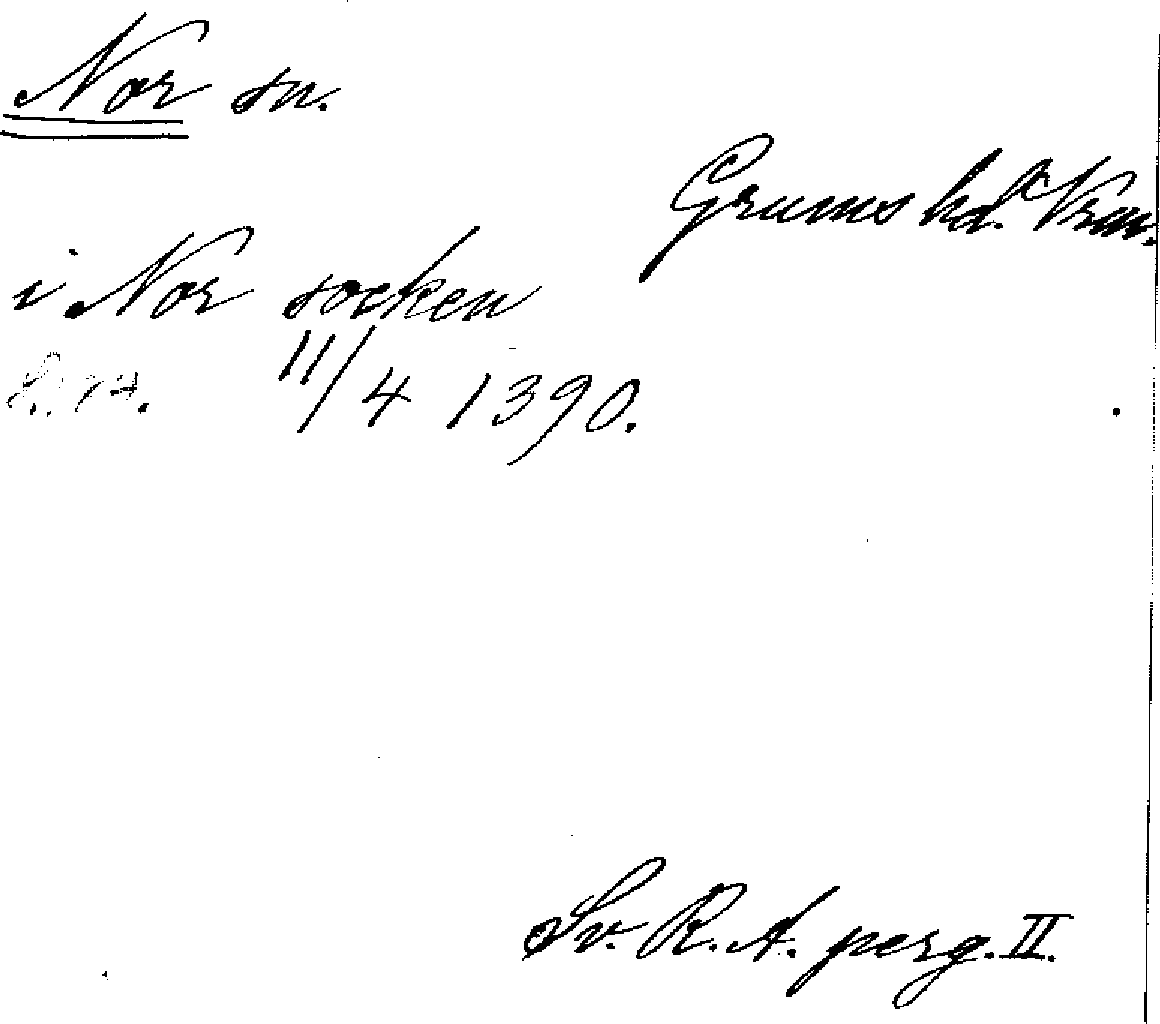 Nor sn.
Grums hd. Vrm.
i Nor socken
11/4 1390.
Sv. R. A. perg. II.